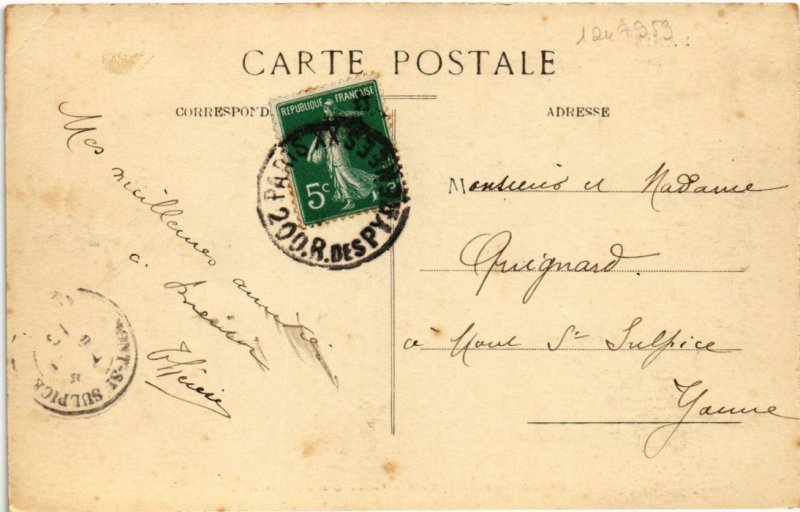 1247959
CARTE POSTALE
CORRESPOND
ADRESSE
REPUBLIQUE FRANÇAISE
5c
PARIS XX
200.R.DES PYR
Mes meilleures amitiés
à
Monsieur et Madame
Quignard
à Mont St Sulpice
Yonne
MONT-ST SULPICE